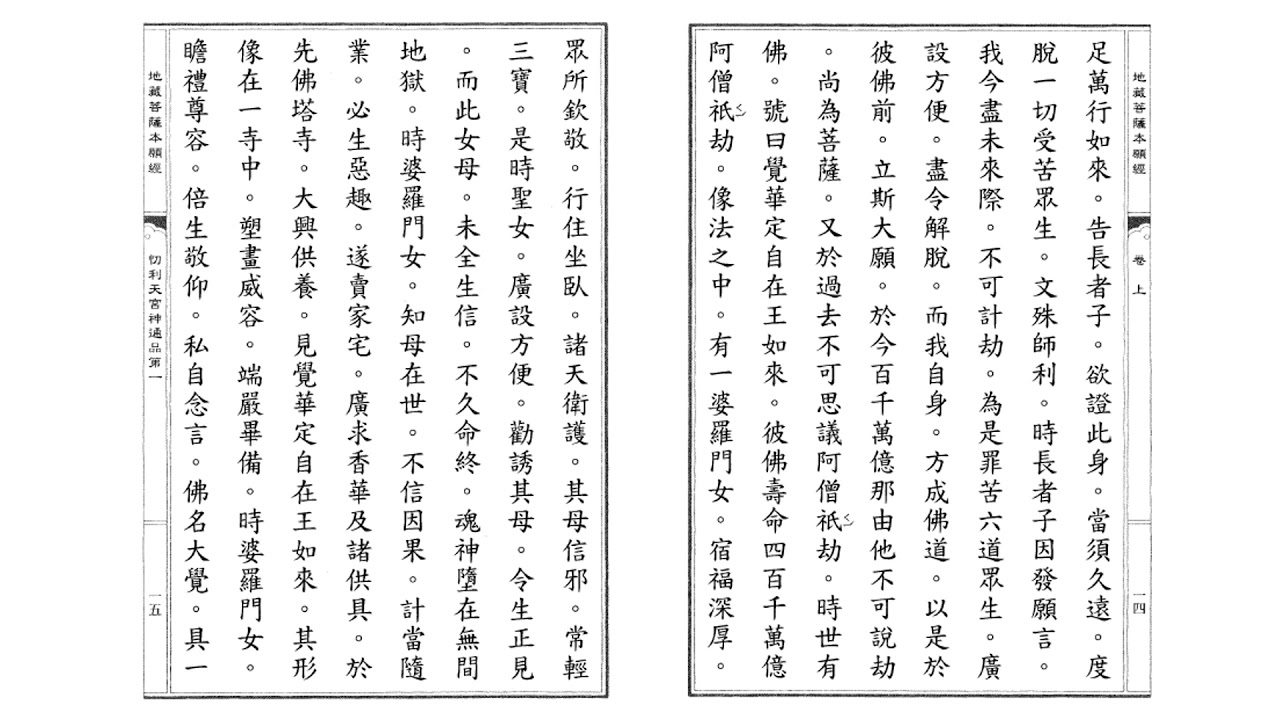 地藏菩薩本願經
卷上
一四
足萬行如來。告長者子。欲證此身。當須久遠。度
脫一切受苦眾生。文殊師利。時長者子因發願言。
我今盡未來際。不可計劫。為是罪苦六道眾生。廣
設方便。盡令解脫。而我自身。方成佛道。以是於
彼佛前。立斯大願。於今百千萬億那由他不可說劫
。尚為菩薩。又於過去不可思議阿僧祇ㄑ劫。時世有
佛。號曰覺華定自在王如來。彼佛壽命四百千萬億
阿僧祇ㄑ劫。像法之中。有一婆羅門女。宿福深厚。
眾所欽敬。行住坐臥。諸天衛護。其母信邪。常輕
三寶。是時聖女。廣設方便。勸誘其母。令生正見
。而此女母。未全生信。不久命終。魂神墮在無間
地獄。時婆羅門女。知母在世。不信因果。計當隨
業。必生惡趣。遂賣家宅。廣求香華及諸供具。於
先佛塔寺。大興供養。見覺華定自在王如來。其形
像在一寺中。塑畫威容。端嚴畢備。時婆羅門女。
瞻禮尊容。倍生敬仰。私自念言。佛名大覺。具一
地藏菩薩本願經
忉利天宮神通品第一
一五